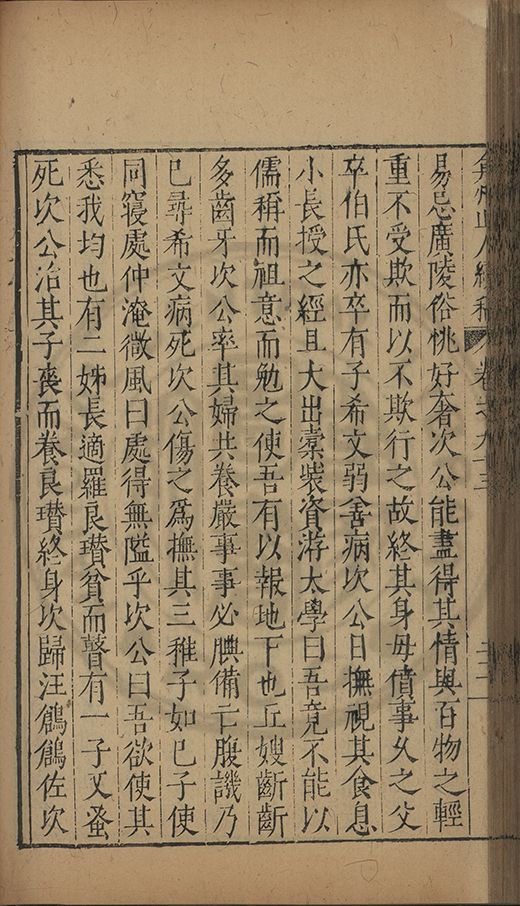 弇州山人續稿 卷之九十三
易忌廣陵俗恌好奢次公能盡得其情與百物之輕
重不受欺而以不欺行之故終其身毋僨事乆之父
卒伯氏亦卒有子希文弱善病次公日撫視其食息
小長授之經且大出槖裝資游太學曰吾竟不能以
儒稱而祖意而勉之使吾有以報地下也丘嫂齗齗
多齒牙次公率其婦共養嚴事事必腆備亡腹譏乃
已尋希文病死次公傷之爲撫其三稚子如已子使
同寢處仲淹微風曰處得無隘乎次公曰吾欲使其
悉我均也有二姊長適羅良瓚貧而瞽有一子又蚤
死次公治其子喪而養良瓚終身次歸汪鶬鶬佐次